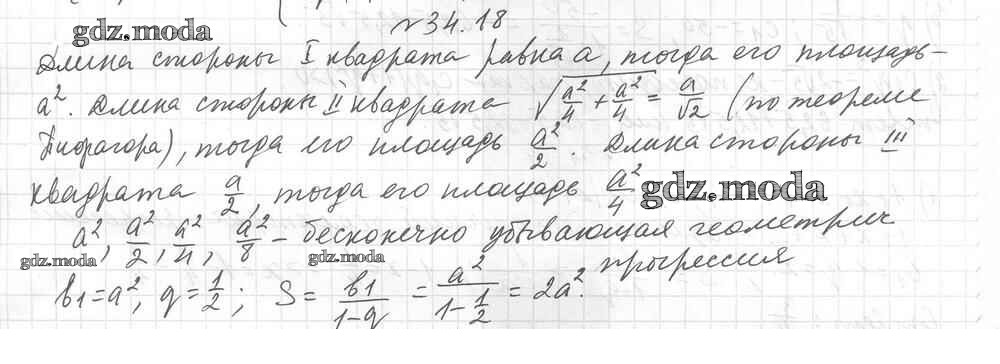 № 34.18
gdz.moda
Длина стороны I квадрата равна a, тогда его площадь –
a². Длина стороны II квадрата √(a²/4 + a²/4) = a/√2 (по теореме
Пифагора), тогда его площадь a²/2. Длина стороны III
квадрата a/2, тогда его площадь a²/4
gdz.moda
a², a²/2, a²/4, a²/8 – бесконечно убывающая геометрич
gdz.moda
gdz.moda
прогрессия
b1 = a², q = 1/2; S = b1/(1-q) = a²/(1-1/2) = 2a².